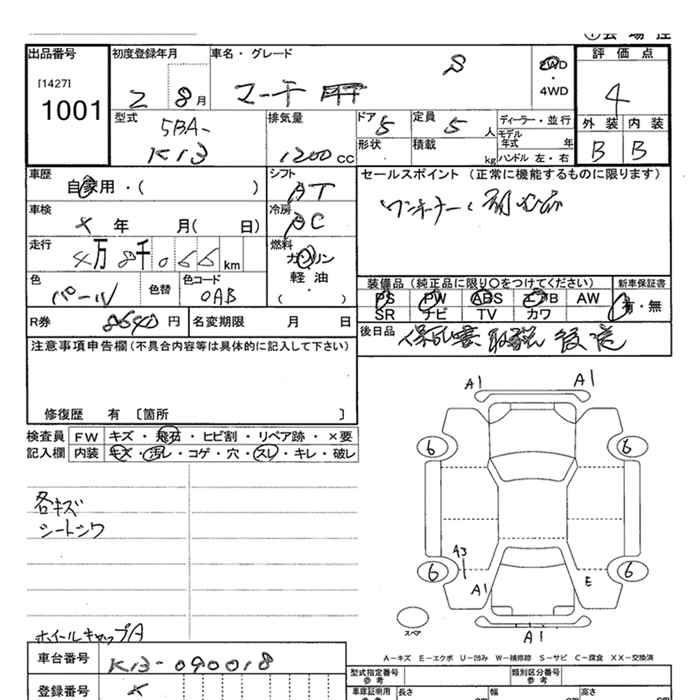 出品番号 初度登録年月 車名・グレード 評価点
[1427]
1001 2 8月 マーチ S 2WD・4WD 4
型式 5BA-K13 排気量 1200cc ドア 5 定員 5人 ディーラー・並行
形状 積載 kg モデル年式 年 ハンドル 左・右
外装 内装
B B
車歴 自家用・( ) シフト AT セールスポイント (正常に機能するものに限ります)
車検 × 年 月( 日) 冷房 AC ワンオーナー
走行 4万8千066km 燃料 ガソリン 軽油 ・( )
色 パール 色替 色コード 0AB
装備品(純正品に限り○をつけてください) 新車保証書
PS PW ABS エアB AW 有・無
SR ナビ TV カワ
R券 8640円 名変期限 月 日
後日品 保証書 取説 後送
注意事項申告欄(不具合内容等は具体的に記入して下さい)
修復歴 有 [箇所 ]
検査員 FW キズ・飛石・ヒビ割・リペア跡・×要
記入欄 内装 キズ・汚レ・コゲ・穴・スレ・キレ・破レ
各キズ
シートシワ
ホイールキャップA
A1 A1
6 6
A3
6 6
A1 E
A1
スペア
A-キズ E-エクボ U-凹み W-補修跡 S-サビ C-腐食 XX-交換済
車台番号 K13-090018
登録番号 ×
型式指定番号 参考 類別区分番号 参考
車庫証明用 参考 長さ 幅 高さ